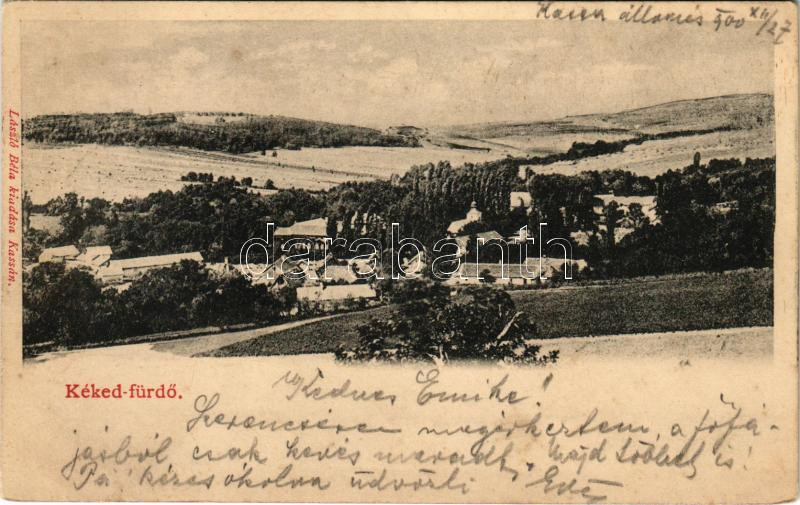 Kassa állomás 900 XII/27
László Béla kiadása Kassán.
darabanth
Kéked-fürdő.
Kedves Emike!
Szerencsésen megérkeztem, a fejfá-
jásból csak kevés maradt, majd többet is!
Pá kézcsókolva üdvözli